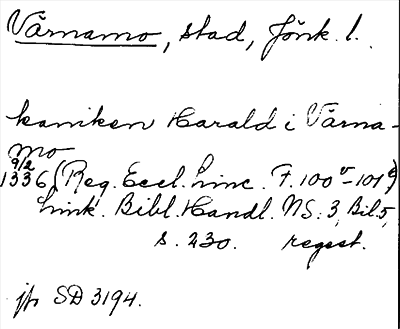 Värnamo, stad, Jönk. l.
kaniken Harald i Värna-
mo
9/2
1336 (Reg. Eccl. Linc. F. 100v-101r)
Link. Bibl. Handl. NS. 3, Bil. 5,
s. 230. regest.
jfr SD 3194.